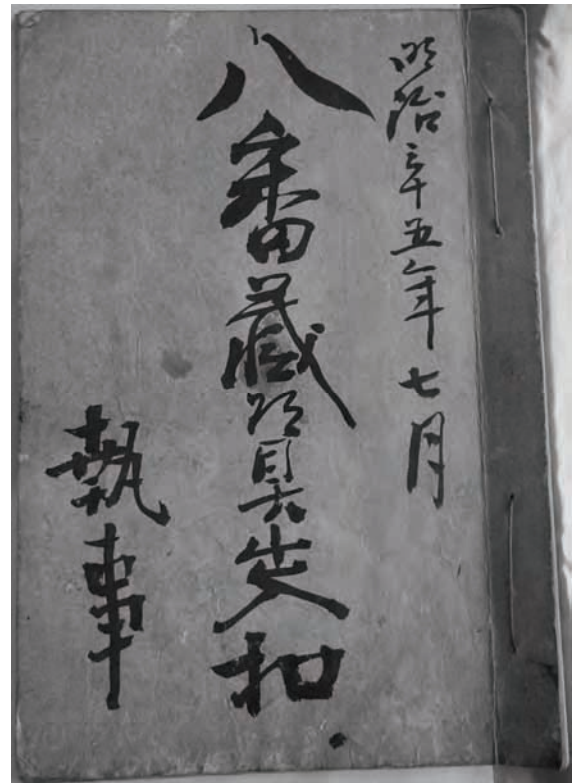 明治三十五年七月
八番蔵道具出入扣
執事